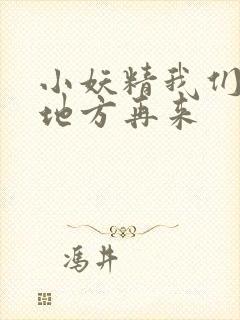 小妖精我们
地方再来
冯井